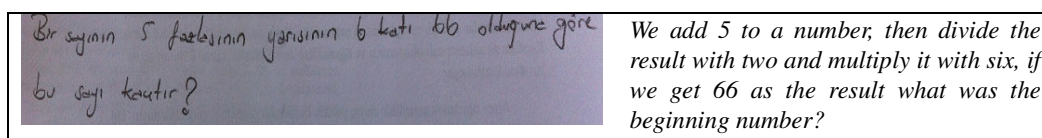 Bir sayının 5 fazlasının yarısının 6 katı 66 olduğuna göre
bu sayı kaçtır?
We add 5 to a number, then divide the
result with two and multiply it with six, if
we get 66 as the result what was the
beginning number?